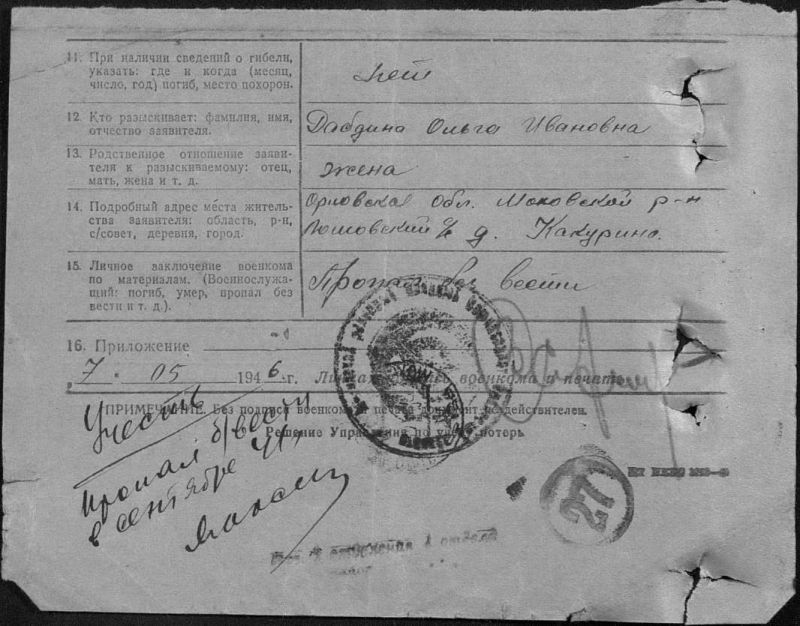 11. При наличии сведений о гибели,
указать: где и когда (месяц,
число, год) погиб, место похорон.
нет
12. Кто разыскивает: фамилия, имя,
отчество заявителя.
Дабдина Ольга Ивановна
13. Родственное отношение заяви-
теля к разыскиваемому: отец,
мать, жена и т. д.
жена
14. Подробный адрес места житель-
ства заявителя: область, р-н,
с/совет, деревня, город.
Орловская обл. Моховской р-н
д. Какурино.
15. Личное заключение военкома
по материалам. (Военнослужа-
щий: погиб, умер, пропал без
вести и т. д.).
Пропал без вести
16. Приложение
7. 05 1946 г. Личная подпись военкома и печать
ПРИМЕЧАНИЕ. Без подписи военкома и печати документ не действителен.
Решение Управления по учету потерь
Учесть
пропал б/вести
в сентябре 41 г.
27